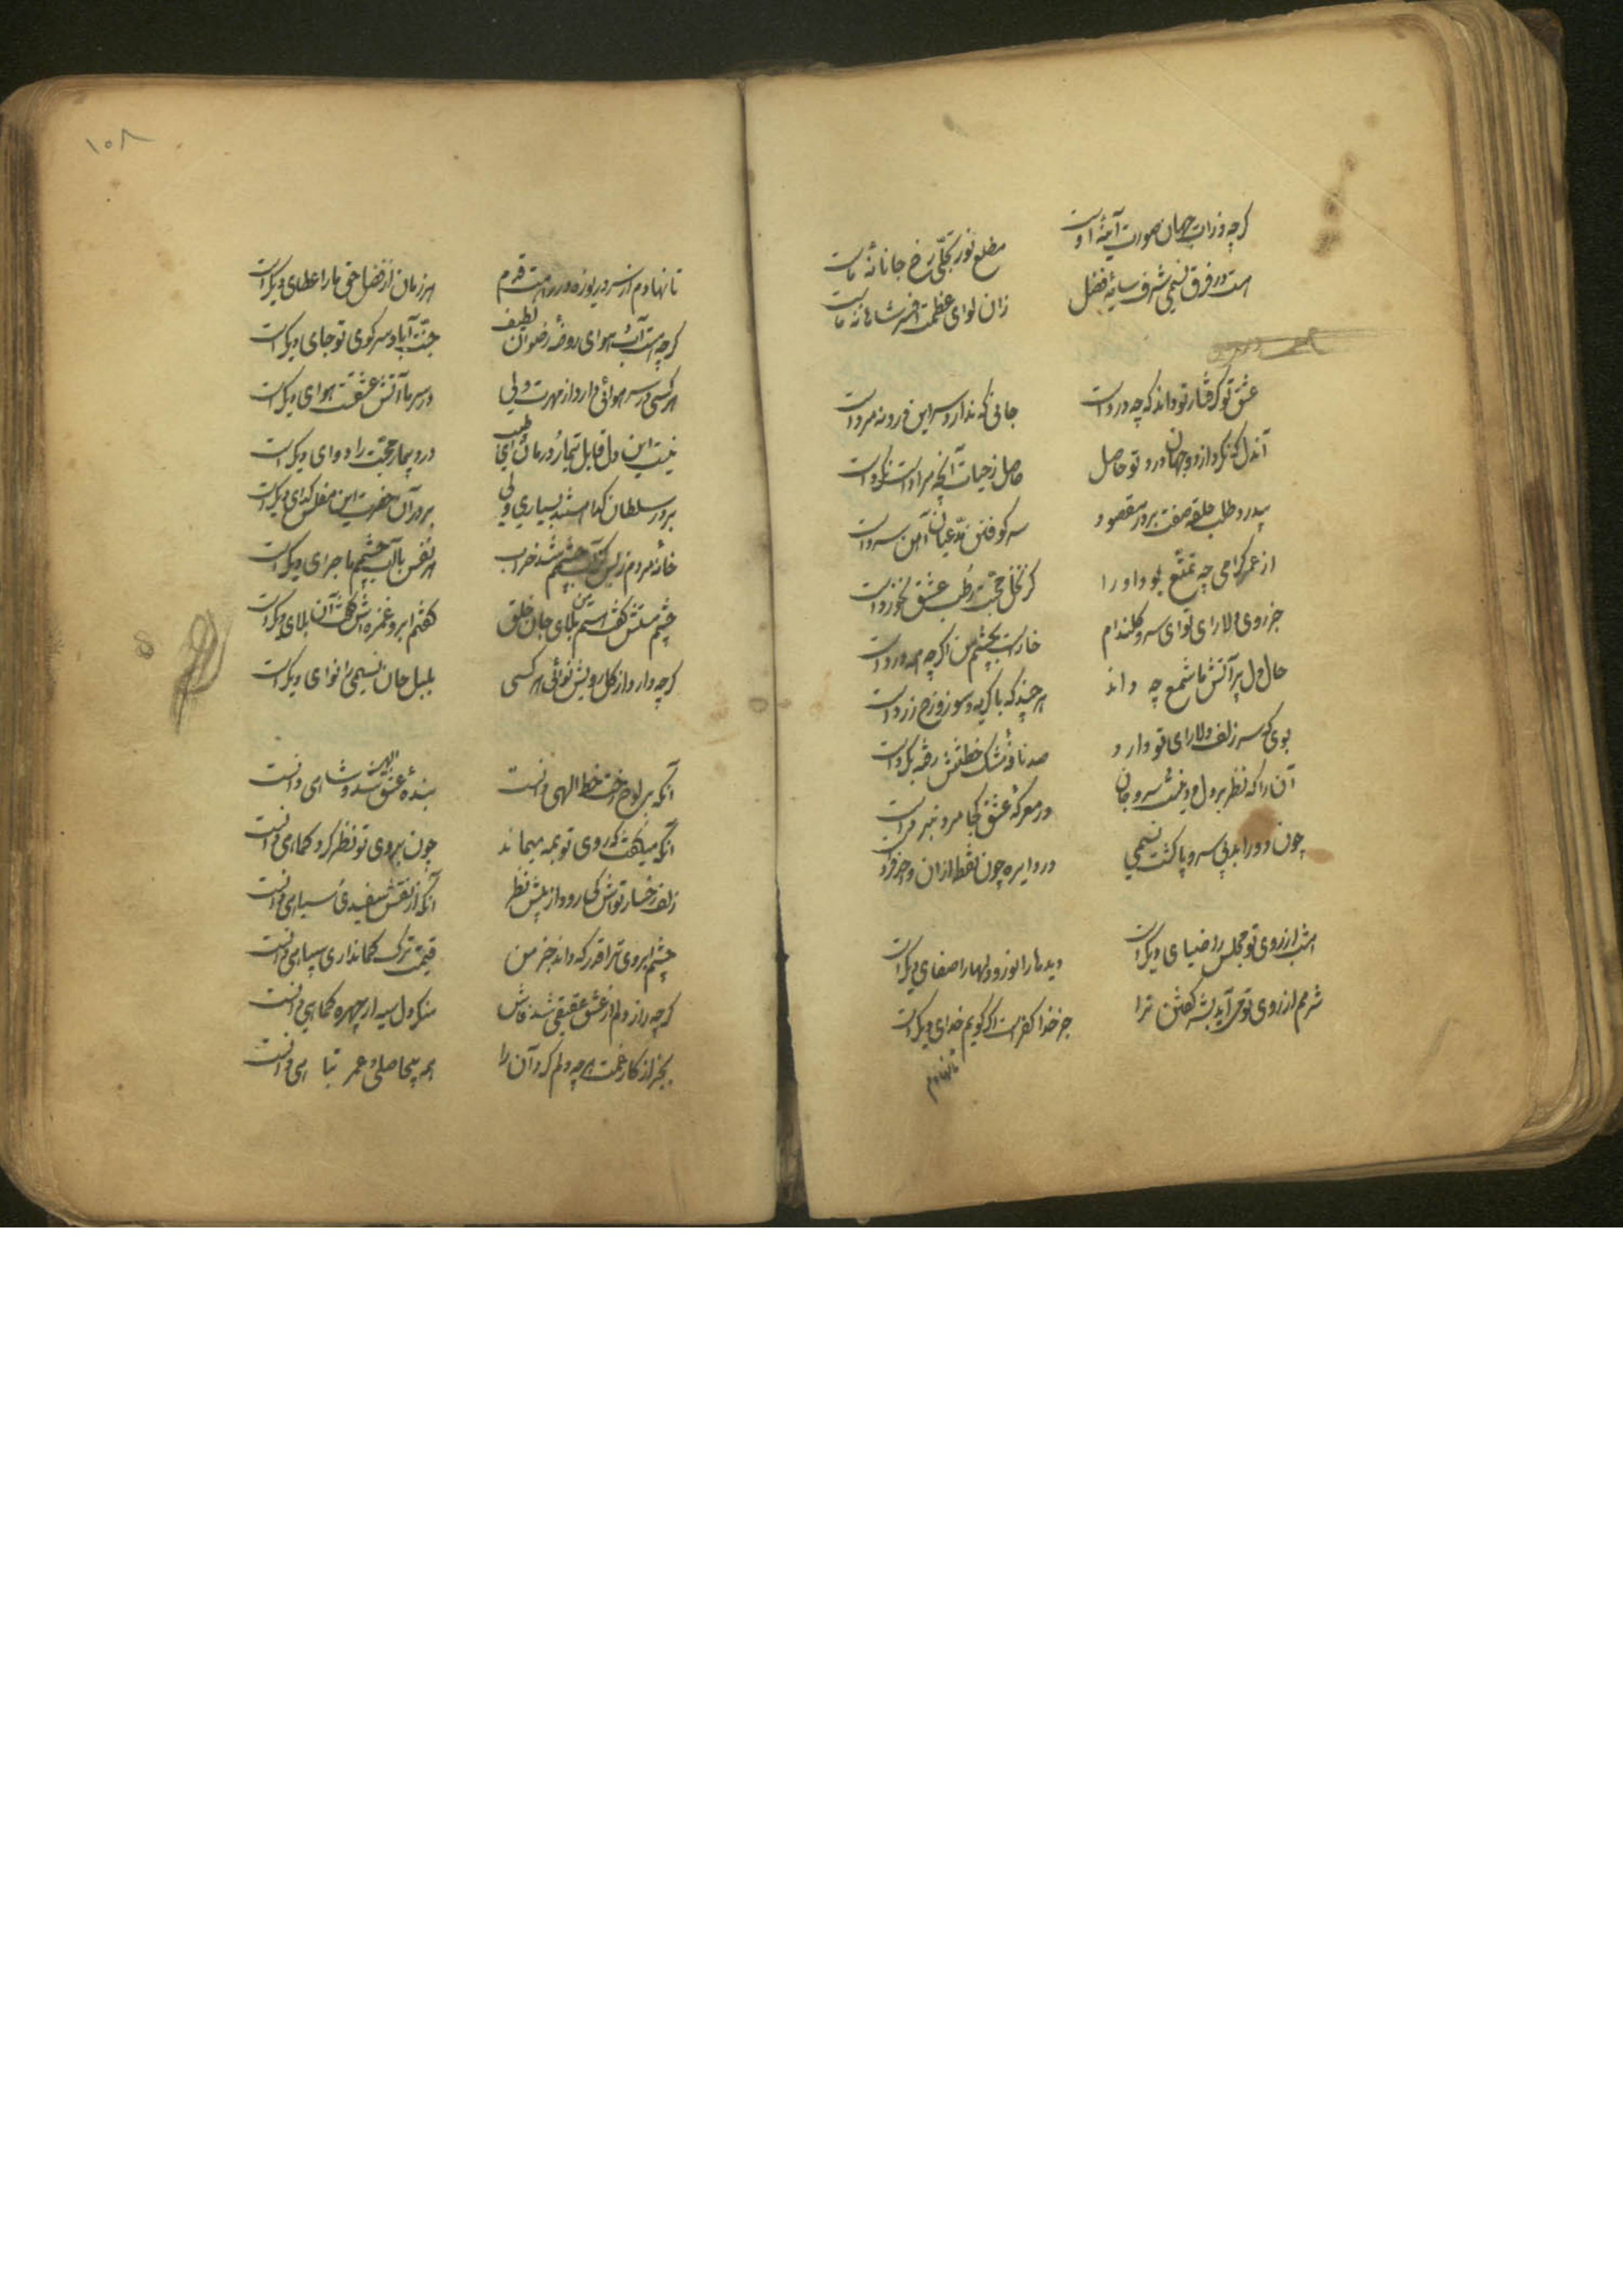 کرچه ذرات جهان صورت آیینه اوست مطلع نور تجلی رخ جانانه ماست
هست در فرق نسیمی شرف سایه فضل زان لوای عظمت افسر شاهانه ماست
عشق تو گرفتار تو داند که چه دردست جانی که ندارد سر این درد نه مردست
آندل که نکرد از دو جهان درد تو حاصل حاصل ز حیات آنچه مرادست نکردست
بیدرد طلب حلقه صفت بر در مقصود سر کوفتن مدعیان آهن سردست
از عمر گرامی چه تمتع بود او را کز نخل محبت رطب عشق نخوردست
جز روی دلارای تو ای سرو گلندام خارست بچشم من اگر چه همه وردست
حال دل پر آتش ما شمع چه داند هر چند که با گریه و سوز و رخ زردست
بوی که سر زلف دلارای تو دارد صد نافه مشک ختنش رفته بگردست
آن را که نظر بر دل و دینست و سر و جان در معرکه عشق کجا مرد نبردست
چون دور ابد بی سر و پا گشت نسیمی در دایره چون نقطه از آن واحد فردست
امشب از روی تو مجلس را ضیای دیگرست دیده ما را نور و دلها را صفای دیگرست
شرمم از روی تو می آید بشر گفتن ترا جز خدا کفرست اگر گویم خدای دیگرست
تا نهادم
۱۰۸
تا نهادم از سر دریوزه در راهت قدم هر زمان از فضل حق ما را عطای دیگرست
کرچه هست آب و هوای روضه رضوان لطیف جنت آباد سر کوی تو جای دیگرست
هر کسی در سر هوائی دارد از مهرت ولی در سر ما آتش عشقت هوای دیگرست
نیست این دل قابل تیمار و درمان ای طبیب درد بیمار محبت را دوای دیگرست
بر در سلطان گدا هستند بسیاری ولی بر در آن حضرت این مفلس گدای دیگرست
خانه مردم ز بس کز آب چشمم شد خراب هر نفس با آب چشمم ماجرای دیگرست
چشم مستش گفت هستم من بلای جان خلق گفتم ابرو غمزه اش گفت آن بلای دیگرست
کرچه دارد از گل رویش نوائی هر کسی بلبل جان نسیمی را نوای دیگرست
آنکه بر لوح رخت خط الهی دانست بنده عشق شد و شاهی دانست
آنکه میگفت که روی تو بمه میماند چون بروی تو نظر کرد کماهی دانست
زلف و رخسار تواش کی رود از پیش نظر آنکه از نقش سفیدی و سیاهی دانست
چشم و ابروی ترا قدر که داند جز من قیمت ترک کمانداری سپاهی دانست
کرچه راز دلم از عشق حقیقی شد فاش منکر دل سیه از چهره کماهی دانست
بجز از کار غمت هر چه دلم کرد آن را همه بیحاصلی و عمر تباهی دانست